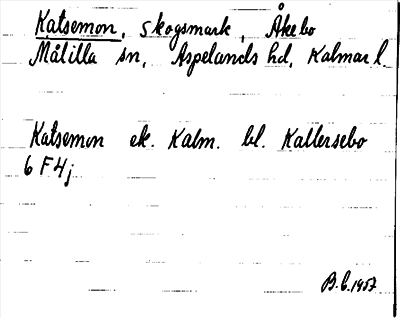 Katsemon, skogsmark, Åkebo
Målilla sn, Aspelands hd, Kalmar l
Katsemon ek. Kalm. bl. Kallersebo
6 F 4j
B.C. 1957